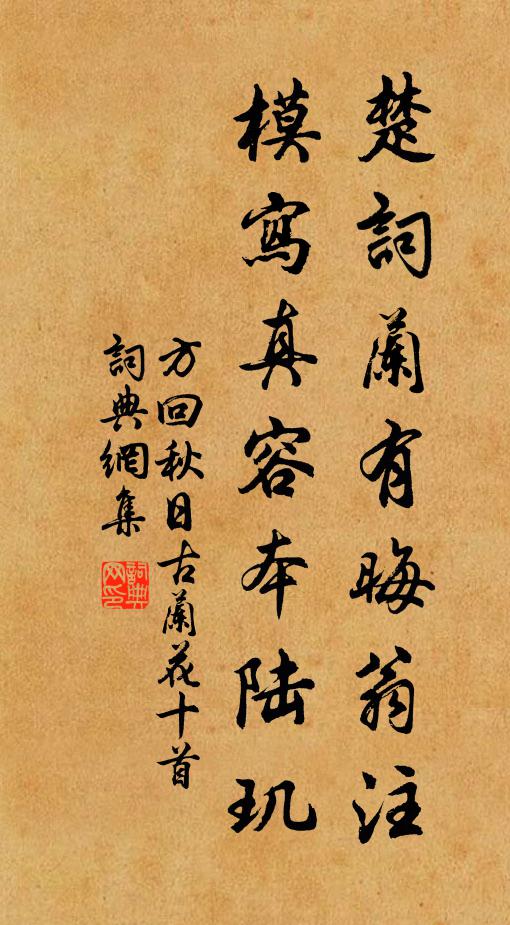 楚詞蘭有晦翁注
模寫真容本陆玑
方回秋日古蘭花十首
詞典網集
詞典网印